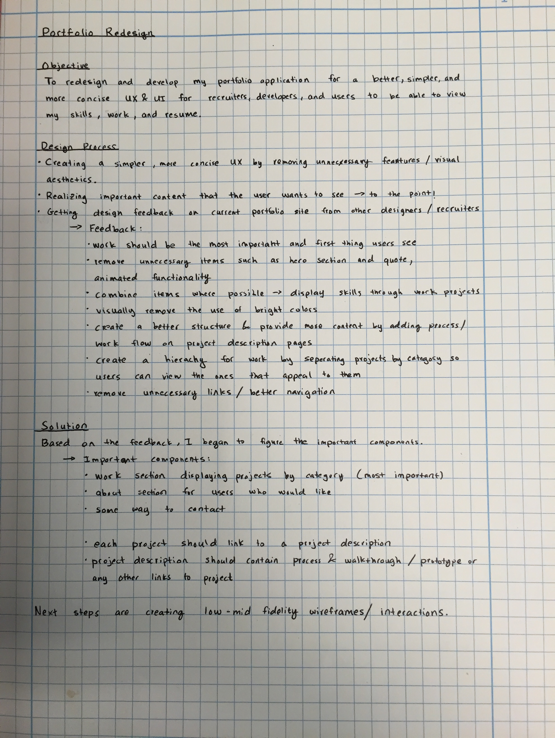 Portfolio Redesign
Objective
To redesign and develop my portfolio application for a better, simpler, and
more concise UX & UI for recruiters, developers, and users to be able to view
my skills, work, and resume.
Design Process
• Creating a simpler, more concise UX by removing unnecessary feartures / visual
aesthetics.
• Realizing important content that the user wants to see → to the point!
• Getting design feedback on current portfolio site from other designers / recruiters
→ Feedback:
• work should be the most important and first thing users see
• remove unnecessary items such as hero section and quote,
animated functionality
• combine items where possible → display skills through work projects
• visually remove the use of bright colors
• create a better structure & provide more content by adding process/
work flow on project description pages
• create a hierachy for work by seperating projects by category so
users can view the ones that appeal to them
• remove unnecessary links / better navigation
Solution
Based on the feedback, I began to figure the important components.
→ Important components:
• work section displaying projects by category (most important)
• about section for users who would like
• some way to contact
• each project should link to a project description
• project description should contain process & walkthrough / prototype or
any other links to project
Next steps are creating low-mid fidelity wireframes/ interactions.